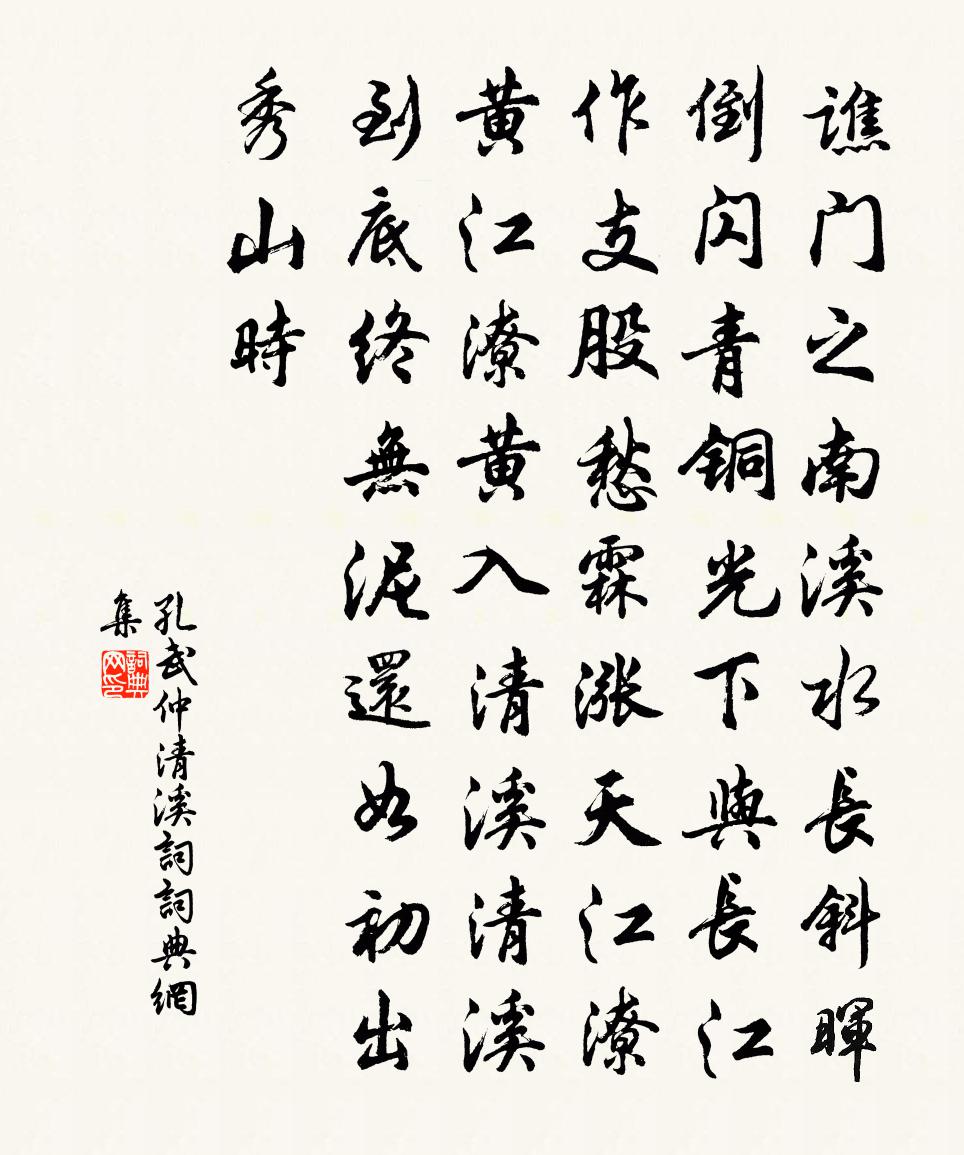 谯门之南溪水長斜暉
倒闪青铜光下與長江
作支股愁霖漲天江潦
黄江潦黄入清溪清溪
到底终無泥還如初出
秀山時
孔武仲清溪詞詞典網
集
詞典网印